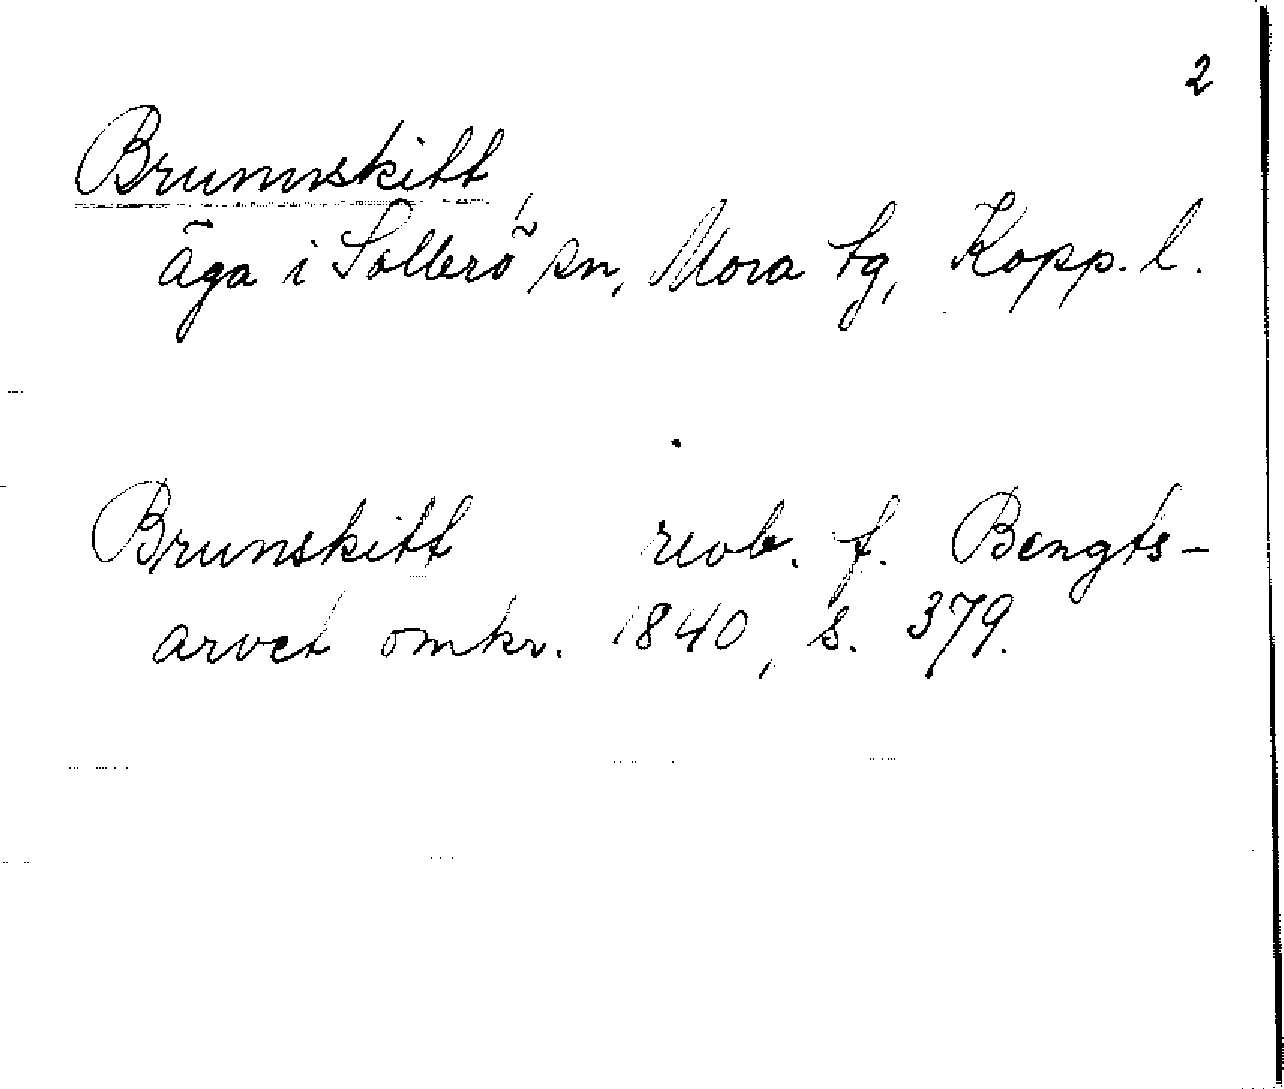 2
Brunnskitt,
äga i Sollerö sn, Mora tg, Kopp. l.
Brunskitt revb. f. Bengts-
arvet omkr. 1840, s. 379.